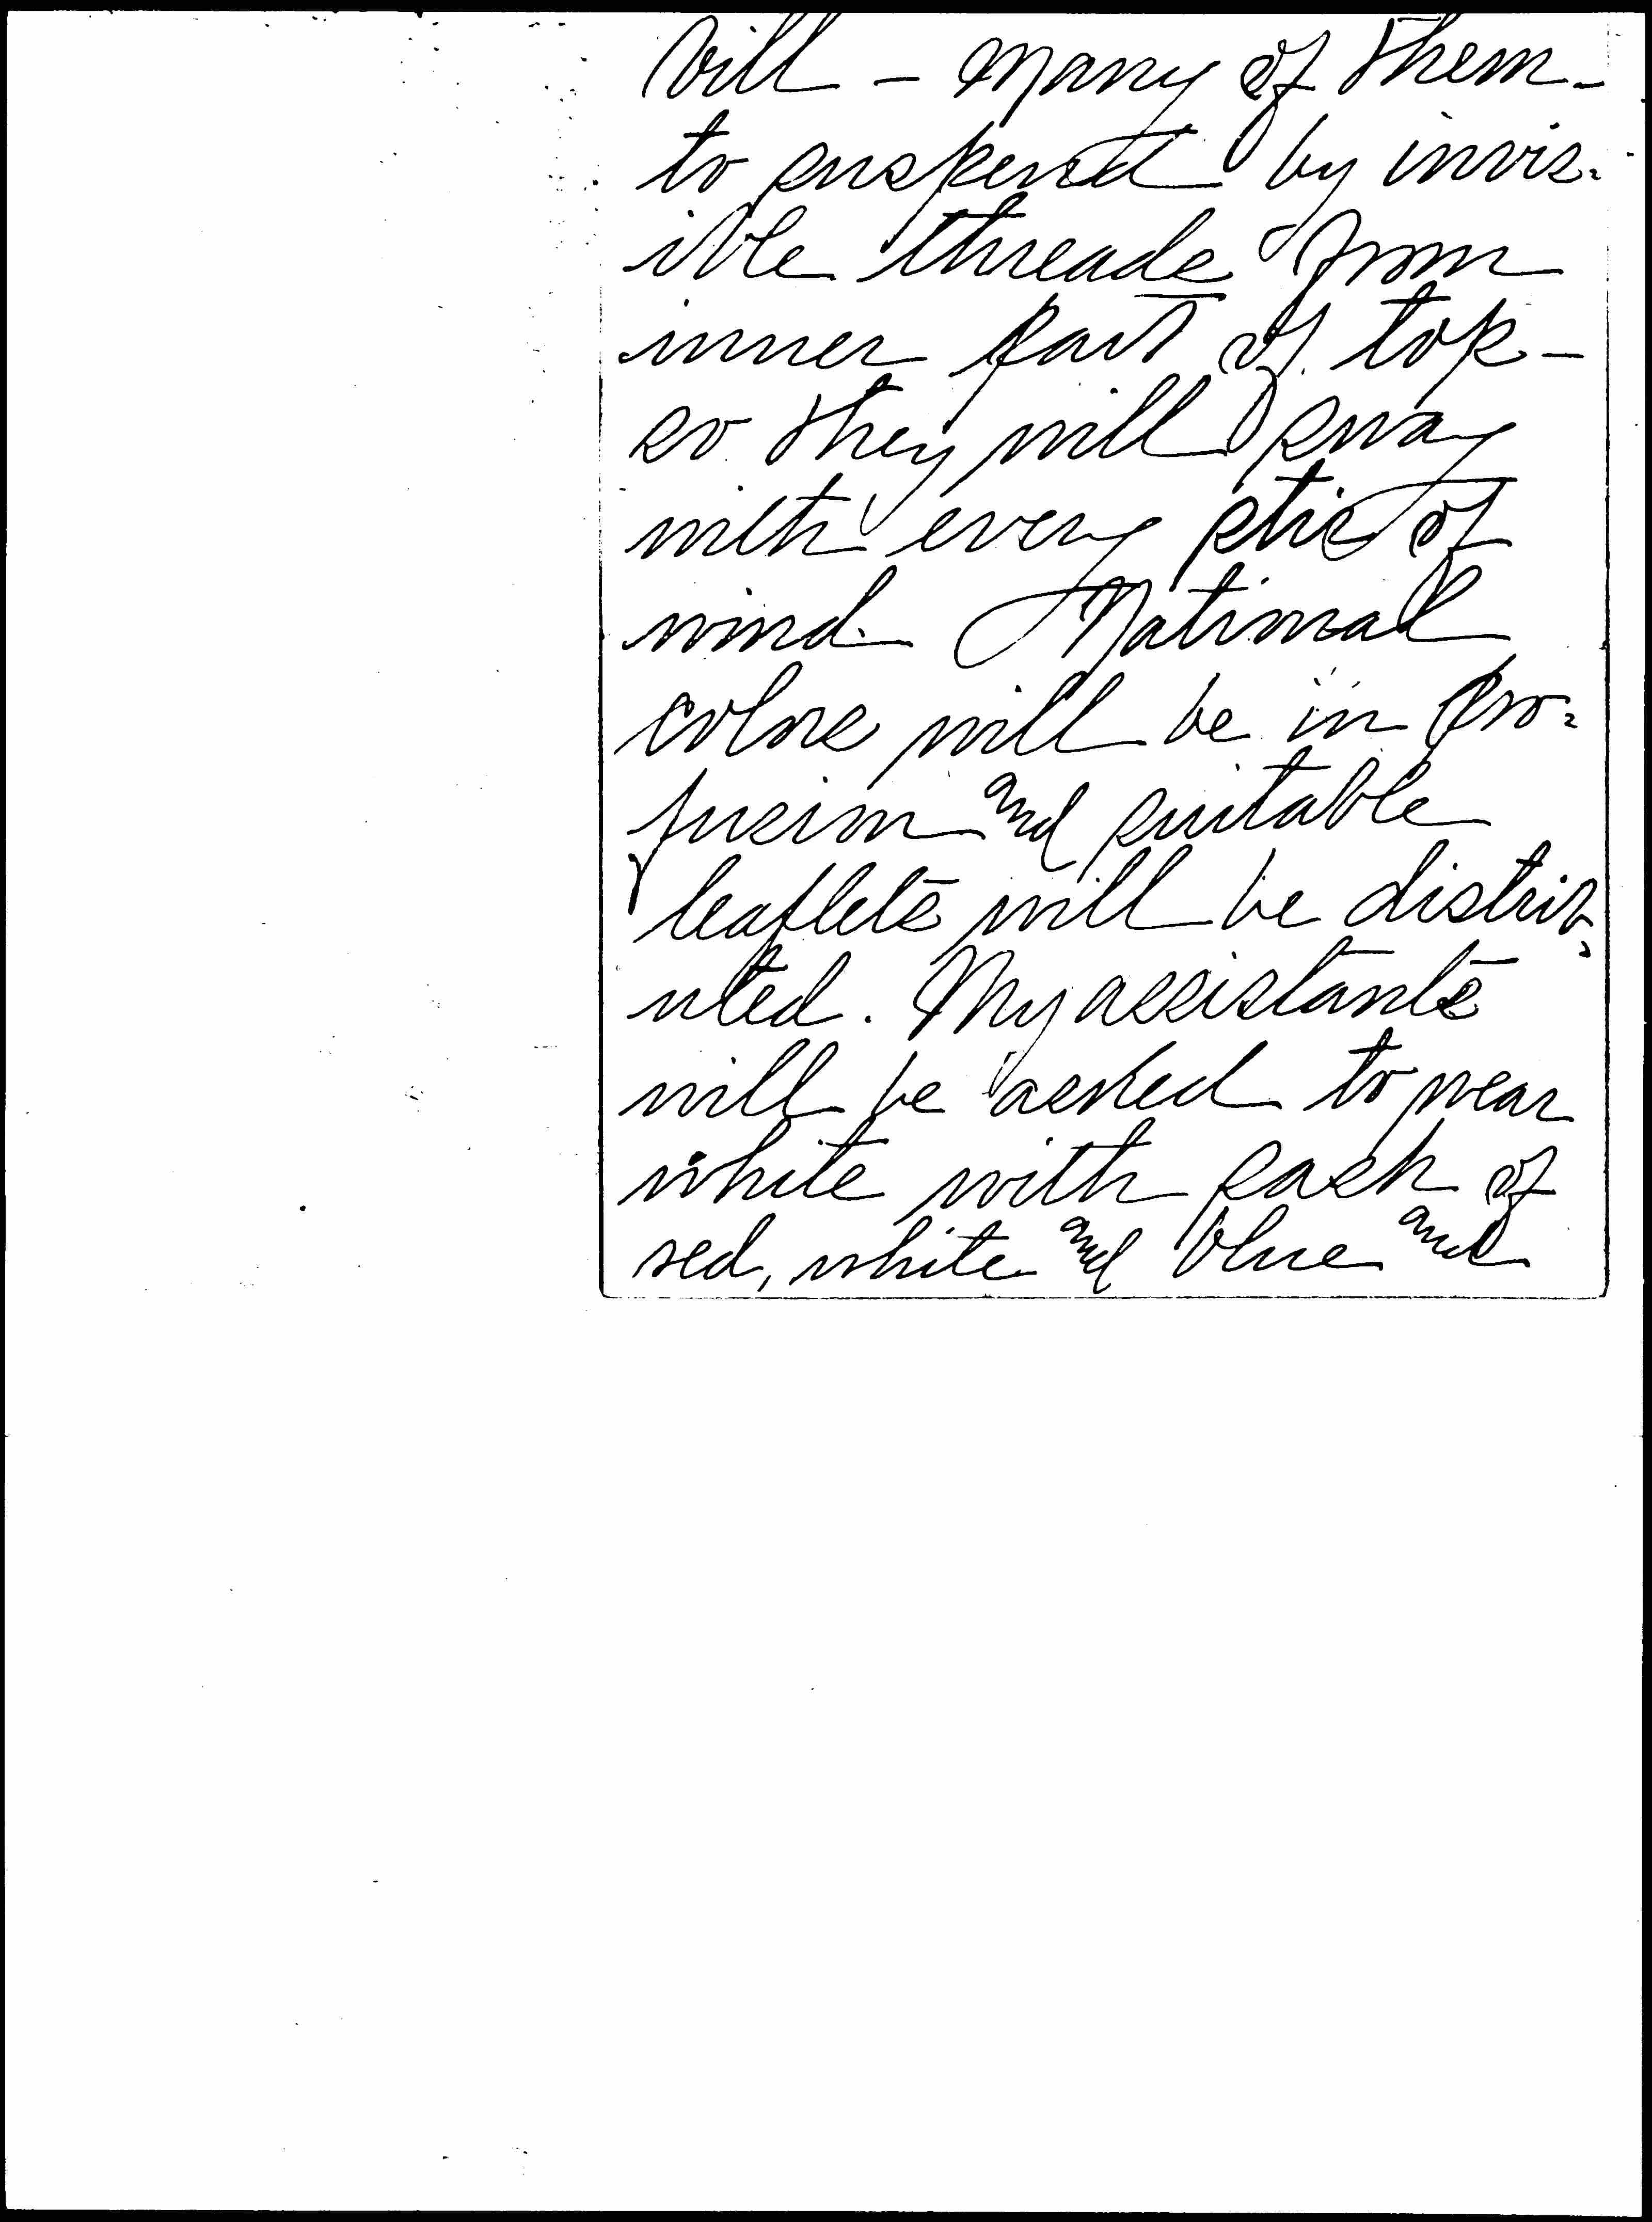 bill - many of them -
to suspend by invis-
ible threads from
inner part of top -
so they will sway
with every stir of
wind. National
colors will be in pro-
fusion and suitable
leaflets will be distrib-
uted. My assistants
will be asked to wear
white with sash of
red, white and blue and